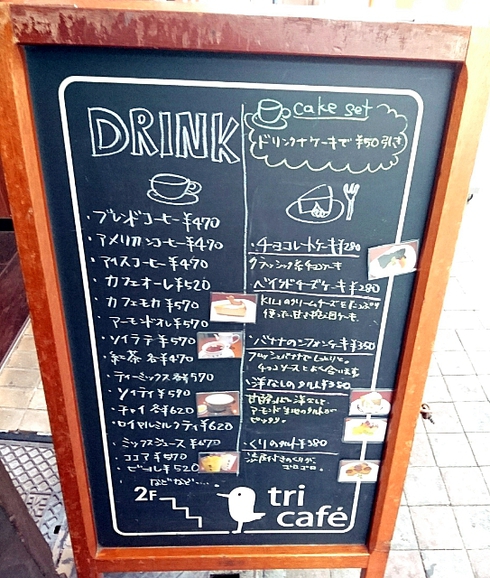 DRINK
・ブレンドコーヒー ¥470
・アメリカンコーヒー ¥470
・アイスコーヒー ¥470
・カフェオーレ ¥520
・カフェモカ ¥570
・アーモンドオレ ¥570
・ソイラテ ¥570
・紅茶 各¥470
・ティーミックス 各¥570
・ソイティ ¥580
・チャイ 各¥620
・ロイヤルミルクティ ¥620
・ミックスジュース ¥670
・ココア ¥570
・ビール ¥520
などなど・・・。
cake set
ドリンク+ケーキで¥50引き
・チョコレートケーキ ¥280
クラッシック系チョコケーキ
・ベイクドチーズケーキ ¥280
KILIのクリームチーズをたっぷり
使った甘さ控え目ケーキ。
・バナナのシフォンケーキ ¥350
フレッシュバナナでしっとりと。
チョコソースとよく合います
・洋なしのタルト ¥350
甘酸っぱい洋なしと、
アーモンド生地のタルトが
ピッタリ。
・くりのタルト ¥380
渋皮付きのくりが、
ゴロゴロ。
2F
tri
café